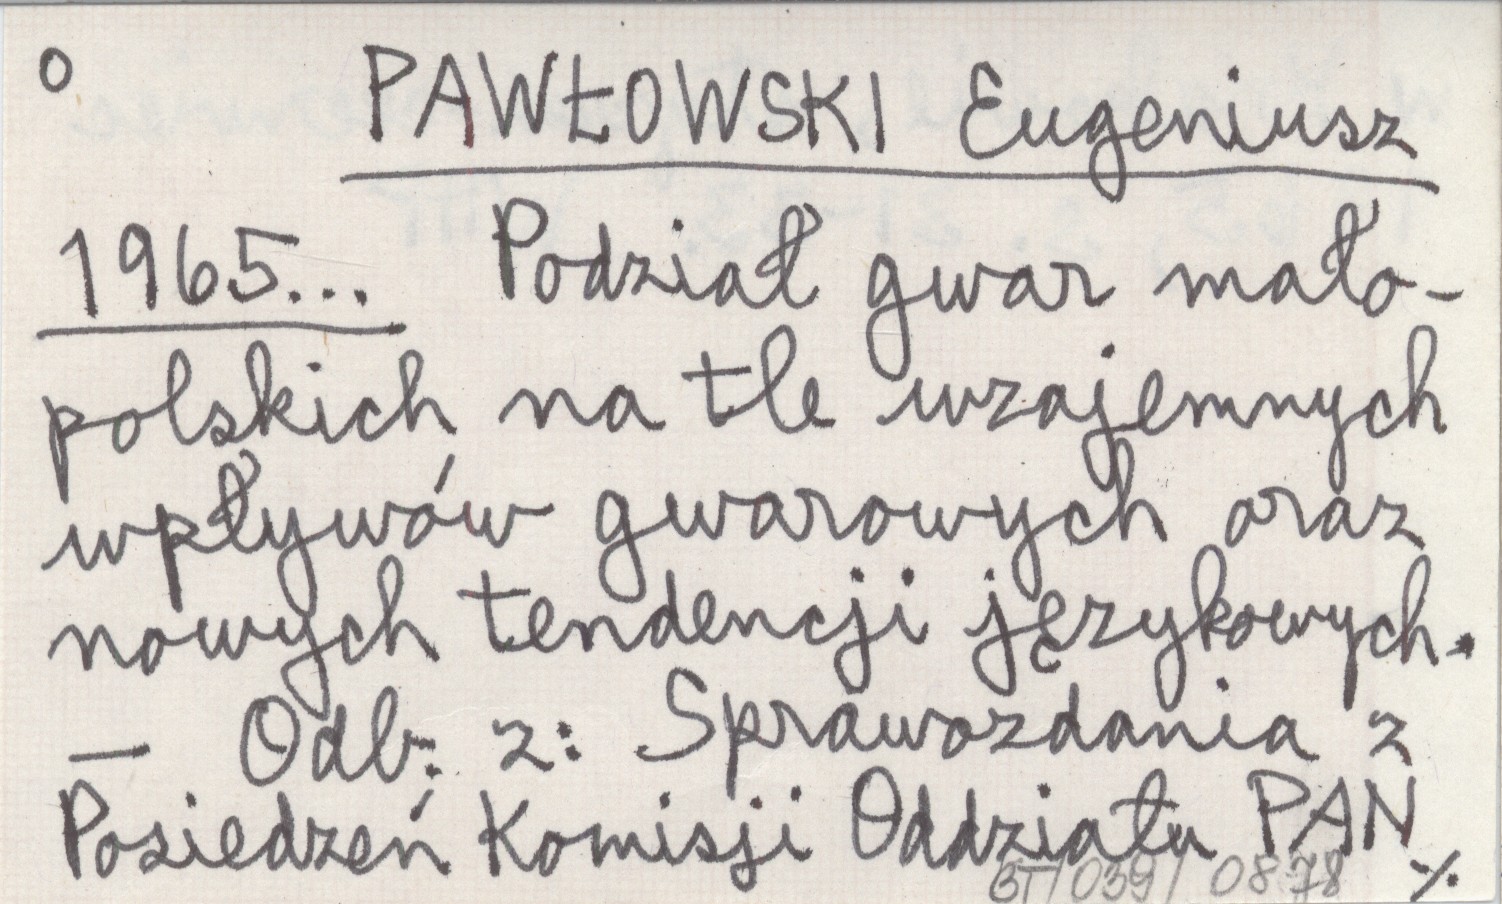 o PAWŁOWSKI Eugeniusz
1965... Podział gwar mało-
polskich na tle wzajemnych
wpływów gwarowych oraz
nowych tendencji językowych.
— Odb. z: Sprawozdania z
Posiedzeń Komisji Oddziału PAN
BT/039/ 08.78 ./.